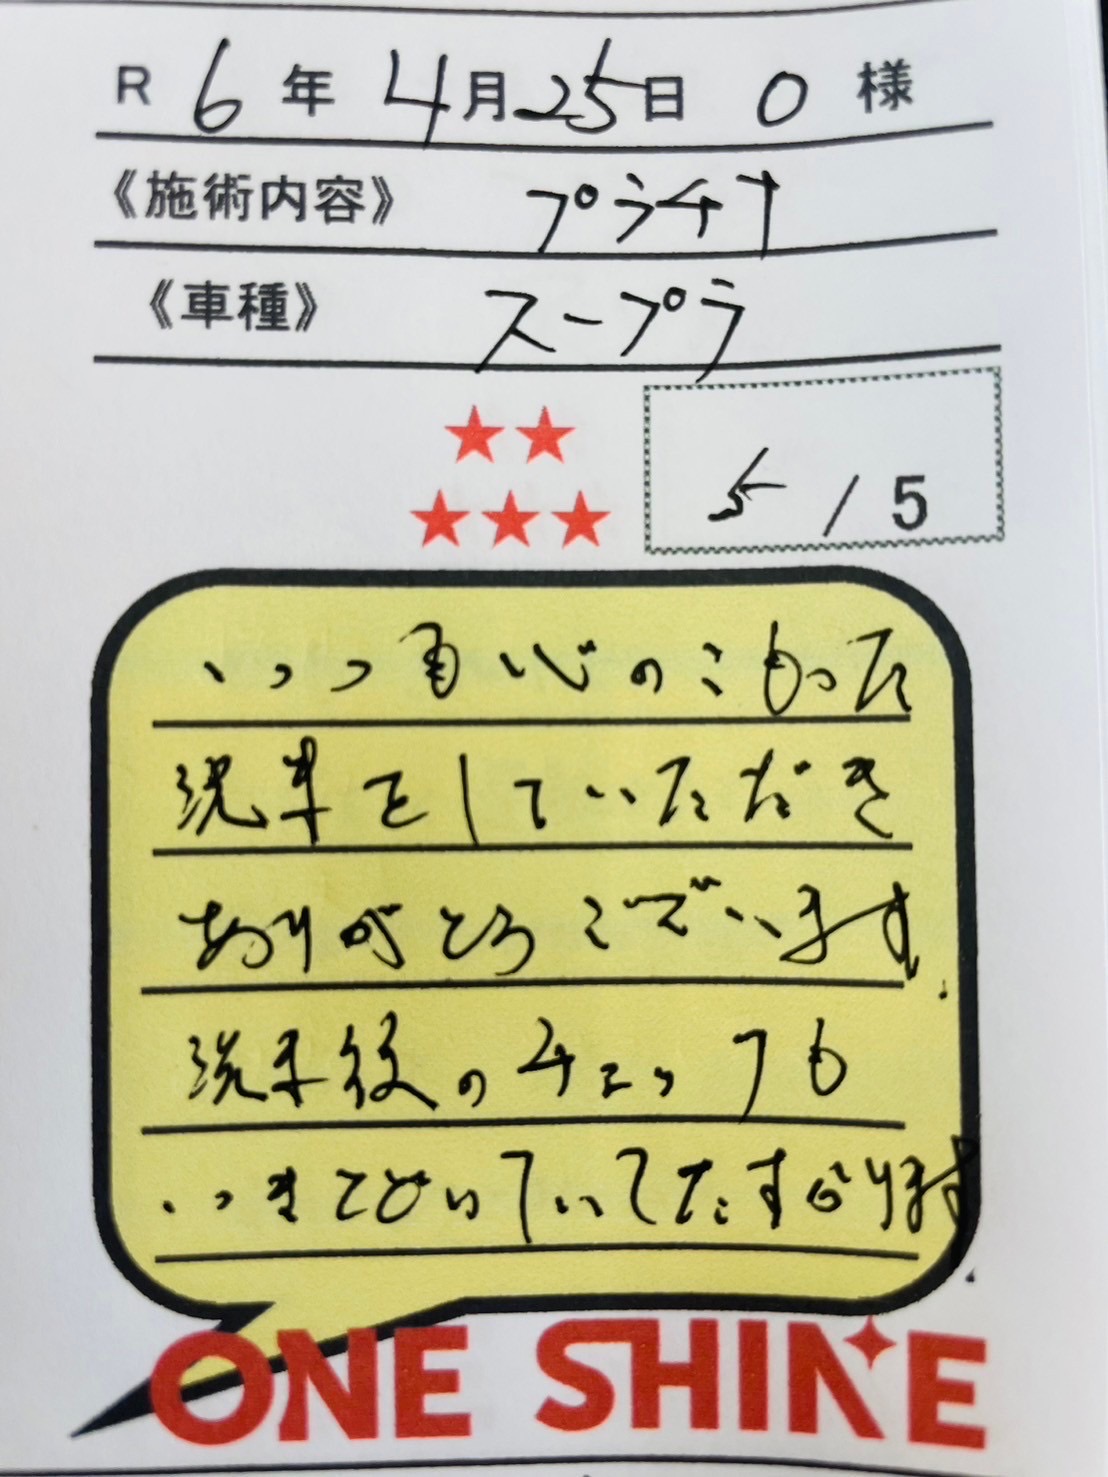 R 6年 4月25日 O様
《施術内容》 プラチナ
《車種》 スープラ
5/5
いつつ真心のこもった
洗車をしていただき
ありがとうございます.
洗車後のチェックも
いきとどいていてたすかります.
ONE SHINE